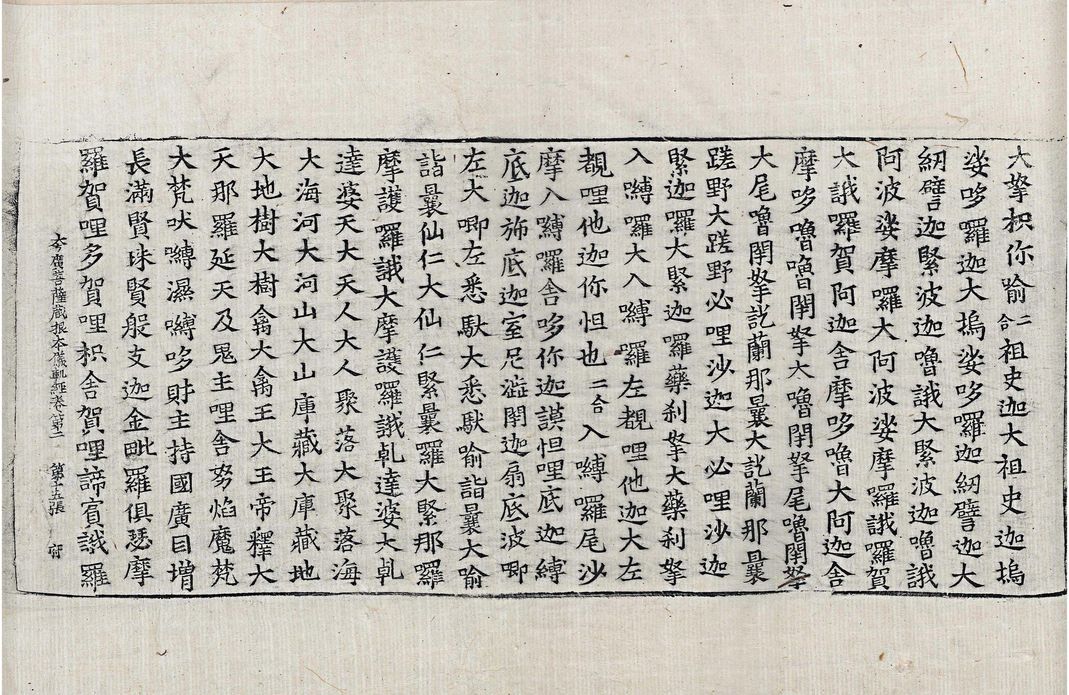 大拏枳你喻二合祖史迦大祖史迦塢
娑哆羅迦大塢娑哆羅迦紉譬迦大
紉譬迦緊波迦嚕誐大緊波迦嚕誐
阿波娑摩囉大阿波娑摩囉誐羅賀
大誐羅賀阿迦舍摩哆嚕大阿迦舍
摩哆嚕嚕閉拏大嚕閉拏尾嚕閉拏
大尾嚕閉拏訖蘭那曩大訖蘭那曩
蹉野大蹉野必哩沙迦大必哩沙迦
緊迦羅大緊迦羅藥剎拏大藥剎拏
入嚩羅大入嚩羅左覩哩他迦大左
覩哩他迦你怛也二合入嚩羅尾沙
摩入嚩囉舍哆你迦謨怛哩底迦嚩
底迦旆底迦室尼澁閉迦扇底波唧
左大唧左悉馱大悉馱喻詣曩大喻
詣曩仙仁大仙仁緊曩羅大緊那羅
摩護囉誐大摩護囉誐乹達婆大乹
達婆天大天人大人聚落大聚落海
大海河大河山大山庫藏大庫藏地
大地樹大樹禽大禽王大王帝釋大
天那羅延天及鬼主哩舍努焰魔梵
大梵吠嚩濕嚩哆財主持國廣目增
長滿賢珠賢般支迦金毗羅俱瑟摩
羅賀哩多賀哩枳舍賀哩諦賓誐羅
方廣菩薩藏根本儀軌經卷第二 第十五張 府